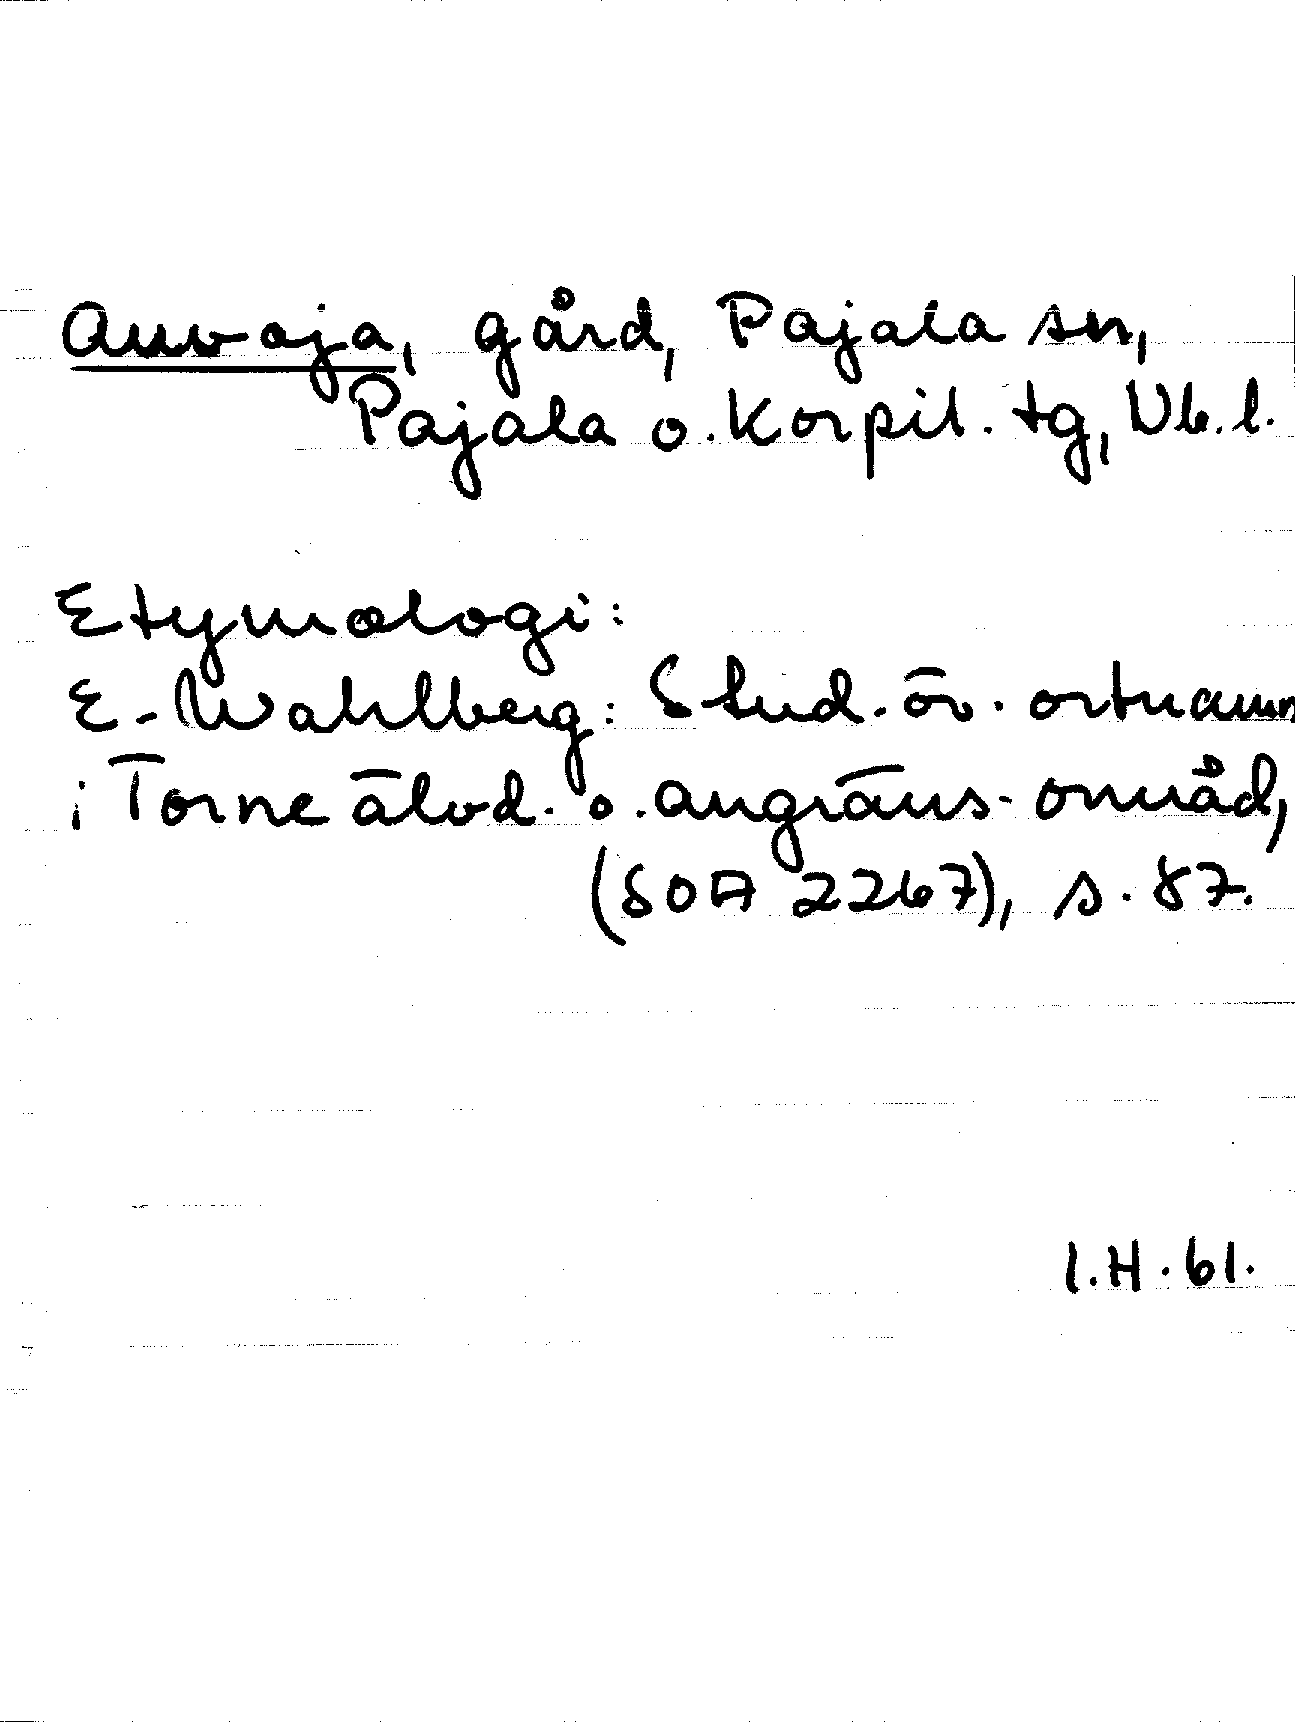 Auvoja, gård, Pajala sn,
Pajala o. Korpil. tg, Nb. l.
Etymologi:
E. Wahlberg: Stud. öv. ortnamn
i Torne älvd. o. angräns. områd,
(SOA 2267), s. 87.
I.H. 61.